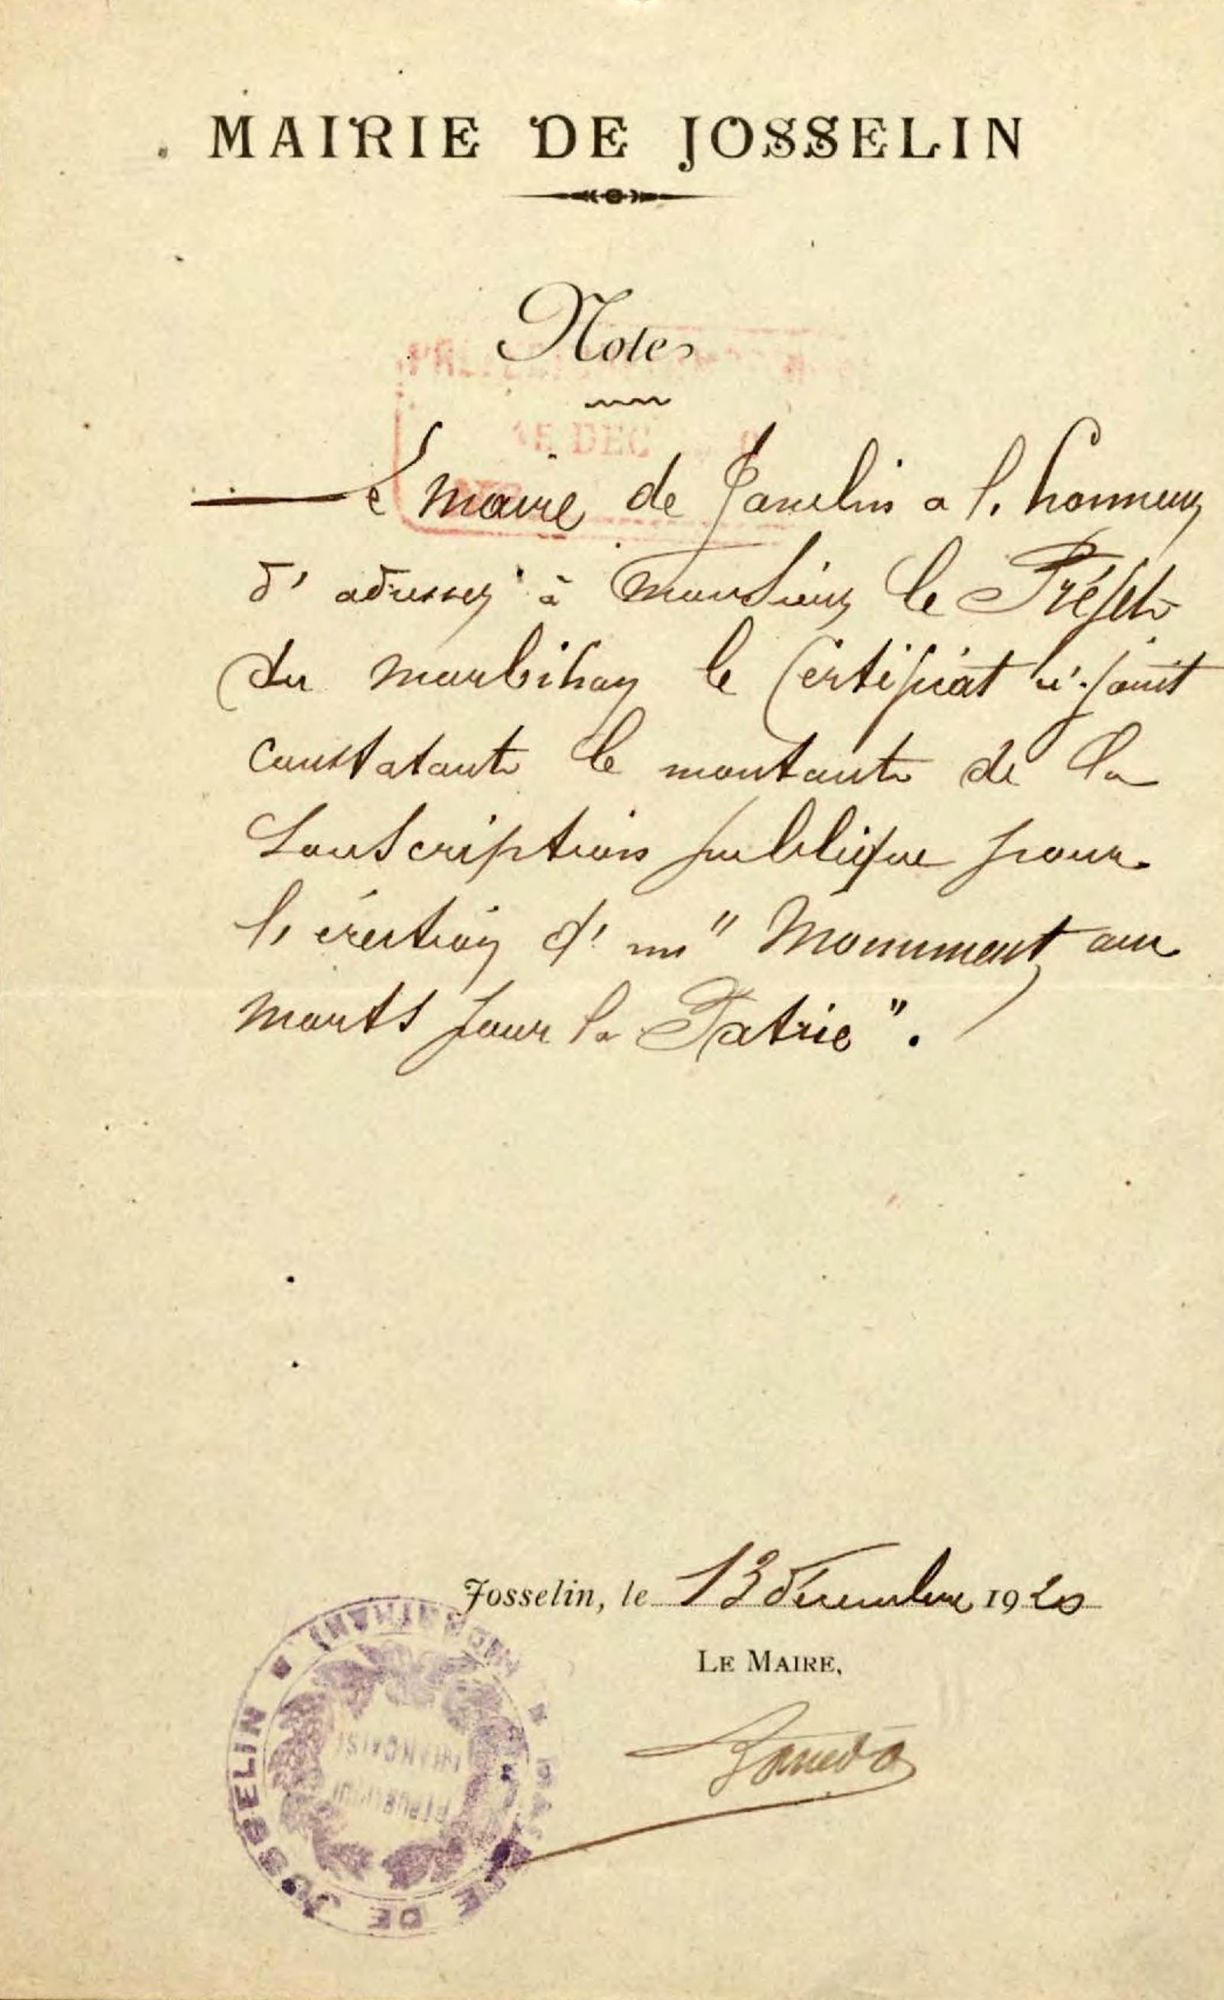 MAIRIE DE JOSSELIN
Note
15 DEC
Le maire de Josselin a l'honneur
d'adresser à Monsieur le Préfet
du Morbihan le Certificat ci-joint
constatant le montant de la
Souscription publique pour
l'érection d'un "Monument aux
morts pour la Patrie".
Josselin, le 13 décembre 1920
LE MAIRE,
MAIRIE DE JOSSELIN (MORBIHAN)
RÉPUBLIQUE
FRANÇAISE